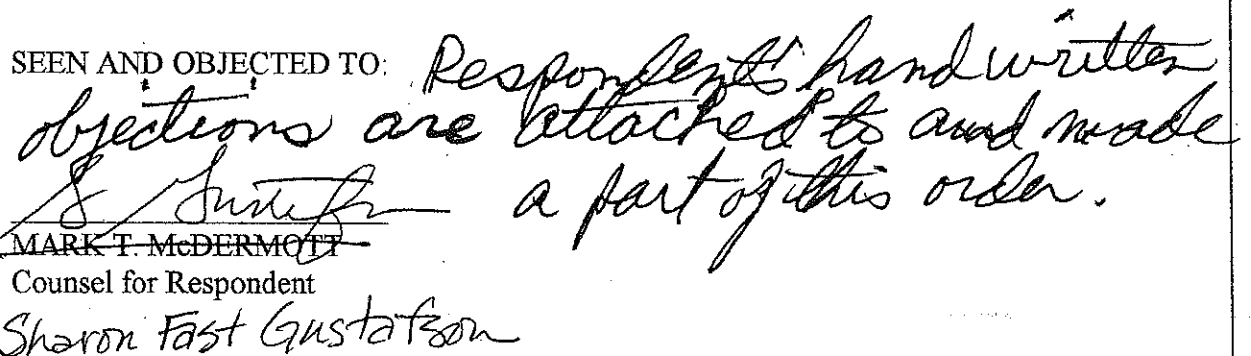 SEEN AND OBJECTED TO: Respondent's handwritten
objections are attached to and made
a part of this order.
S Gustafson
MARK T. McDERMOTT
Counsel for Respondent
Sharon Fast Gustafson